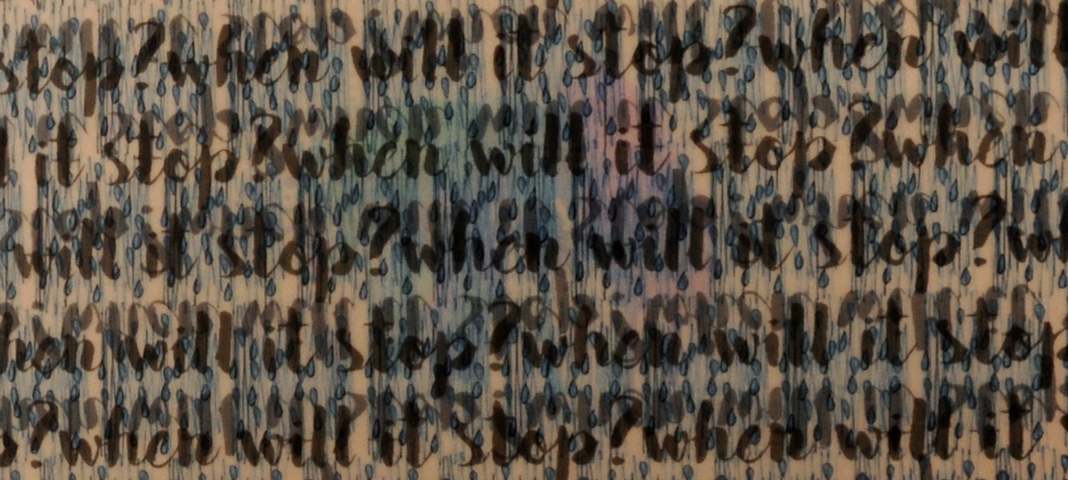 stop?when will it stop?when will
it stop?when will it stop?when
will it stop?when will it stop?w
hen will it stop?when will it stop
?when will it stop?when will it